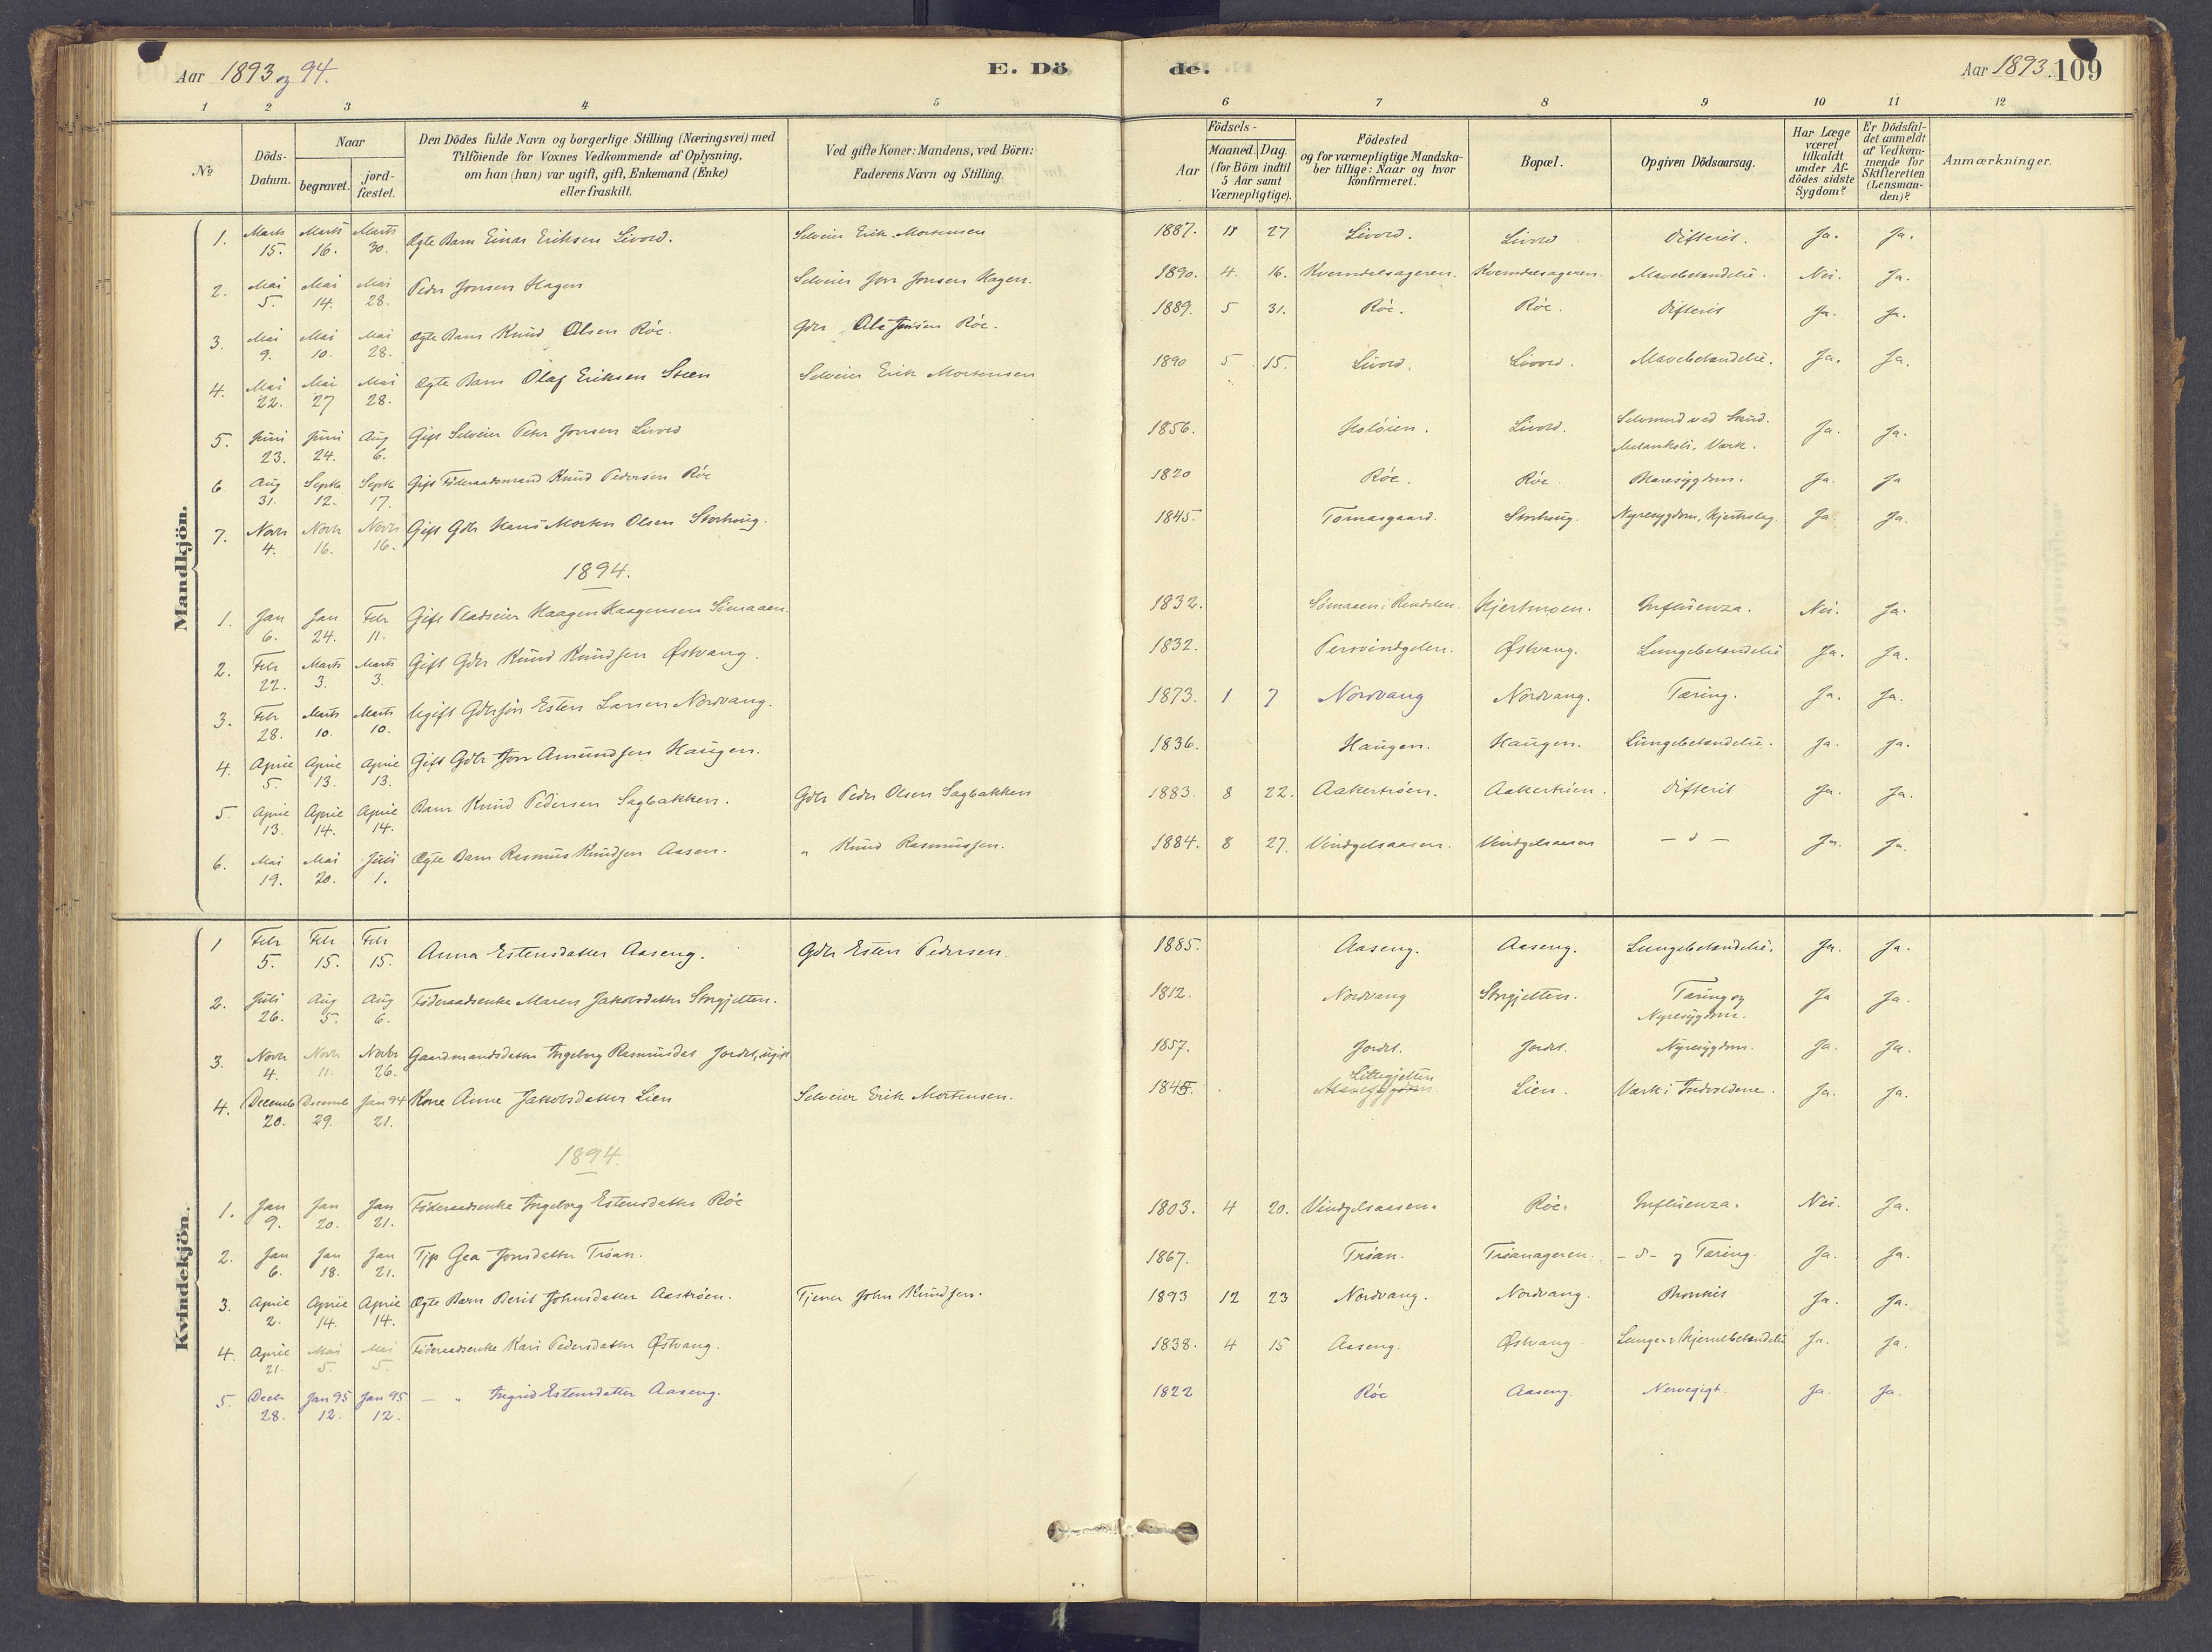 Aar 1893 og 94.
E. Dö
de.
Aar 1893.
109
1 2 3 4 5 6 7 8 9 10 11 12
No
Döds-
Datum.
Naar
begravet.
jord-
fæstet.
Den Dödes fulde Navn og borgerlige Stilling (Næringsvei) med
Tilföiende for Voxnes Vedkommende af Oplysning,
om han (hun) var ugift, gift, Enkemand (Enke)
eller fraskilt.
Ved gifte Koner: Mandens, ved Börn:
Faderens Navn og Stilling.
Födsels-
Aar
Maaned. Dag.
(for Börn indtil
5 Aar samt
Værnepligtige).
Födested
og for værnepligtige Mandska-
ber tillige: Naar og hvor
konfirmeret.
Bopæl.
Opgiven Dödsaarsag.
Har Læge
været
tilkaldt
under Af-
dödes sidste
Sygdom?
Er Dödsfal-
det anmeldt
af Vedkom-
mende for
Skifteretten
(Lensman-
den)?
Anmærkninger.
Mandkjön.
1. Marts 15. Marts 16. Marts 30. Ægte Barn Einar Eriksen Livord. Selveier Erik Mortensen 1887. 11 27 Livord. Livord Difterit. Ja. Ja.
2. Mai 5. Mai 14. Mai 28. Peder Jonsen Hagen Selveier Jon Jonsen Hagen. 1890. 4. 16. Kverndalsageren. Kverndalsageren. Mavebetændelse. Nei. Ja.
3. Mai 9. Mai 10. Mai 28. Ægte Barn Knud Olsen Röe. Gdbr Ola Jensen Röe. 1889. 5 31. Röe. Röe. Difterit Ja. Ja.
4. Mai 22. Mai 27 Mai 28. Ægte Barn Olaf Eriksen Steen Selveier Erik Mortensen 1890 5 15. Livord. Livord. Mavebetændelse. Ja. Ja.
5. Juni 23. Juni 24. Aug 6. Gift Selveier Peter Jonsen Livord 1856. Holöien. Livord. Selvmord ved Skud.
Melankoli, Værk. Ja. Ja.
6. Aug 31. Septb 12. Septb 17. Gift Föderaadsmand Knud Pedersen Röe 1820 Röe. Röe. Blæresygdom. Ja. Ja
7. Novbr 4. Novbr 16. Novbr 16. Gift Gdbr Hans Morten Olsen Storhoug. 1845. Tomasgaard. Storhoug. Nyresygdom, Hjerteslag Ja. Ja.
1894.
1. Jan 6. Jan 24. Febr 11. Gift Pladseier Haagen Haagensen Sömaaen. 1832. Sömaaen i Rendalen. Hjertmoen. Influenza. Nei. Ja.
2. Febr 22. Marts 3. Marts 3. Gift Gdbr Knud Knudsen Østvang. 1832. Perovindgelen. Østvang. Lungebetændelse Ja. Ja.
3. Febr 28. Marts 10. Marts 10. Ugift Gdbrsön Esten Larsen Nordvang. 1873. 1 7 Nordvang Nordvang. Tæring. Ja. Ja.
4. April 5. April 13. April 13. Gift Gdbr Jon Amundsen Haugen. 1836. Haugen. Haugen. Lungebetændelse. Ja. Ja.
5. April 13. April 14. April 14. Barn Knud Pedersen Sagbakken. Gdbr Peder Olsen Sagbakken 1883. 8 22. Aakertröen. Aakertröen. Difterit Ja. Ja.
6. Mai 19. Mai 20. Juli 1. Ægte Barn Rasmus Knudsen Aasen. " Knud Rasmussen. 1884. 8 27. Vindgelsaasen. Vindgelsaasen – d – Ja. Ja.
Kvindekjön.
1 Febr 5. Febr 15. Febr 15. Anna Estensdatter Aaseng. Gdbr Esten Pedersen. 1885. Aaseng. Aaseng. Lungebetændelse. Ja. Ja.
2. Juli 26. Aug 5. Aug 6. Föderaadsenke Maren Jakobsdatter Storgjelten. 1812. Nordvang Storgjelten. Tæring og
Nyresygdom. Ja Ja.
3. Novbr 4. Novbr 11. Novbr 26. Gaardmandsdatter Ingeborg Rasmusdat Jordet, ugift 1857. Jordet. Jordet. Nyresygdom. Ja. Ja.
4. Decemb 20. Decemb 29. Jan 94 21. Kone Anne Jakobsdatter Lien Selveier Erik Mortensen. 1845. Littlegjelten Lien. Værk i Indvoldene. Ja. Ja.
1894.
1. Jan 9. Jan 20. Jan 21. Föderaadsenke Ingeborg Estensdatter Röe 1803. 4 20. Vindgelsaasen. Röe. Influenza. Nei. Ja.
2. Jan 6. Jan 18. Jan 21. Tjp Gea Jonsdatter Tröan. 1867. Tröan. Tröanageren. – d – og Tæring. Ja. Ja.
3. April 2. April 14. April 14. Ægte Barn Berit Johnsdatter Aaströen. Tjener John Knudsen. 1893 12 23 Nordvang. Nordvang. Bronkit Ja. Ja.
4. April 21. Mai 5. Mai 5. Föderaadsenke Kari Pedersdatter Østvang. 1838. 4 15 Aaseng. Østvang. Lunge- & Hjernebetændelse Ja. Ja.
5. Decbr 28. Jan 95 12. Jan 95 12. – " Ingrid Estensdatter Aaseng. 1822 Röe Aaseng. Nervegigt. Ja. Ja.